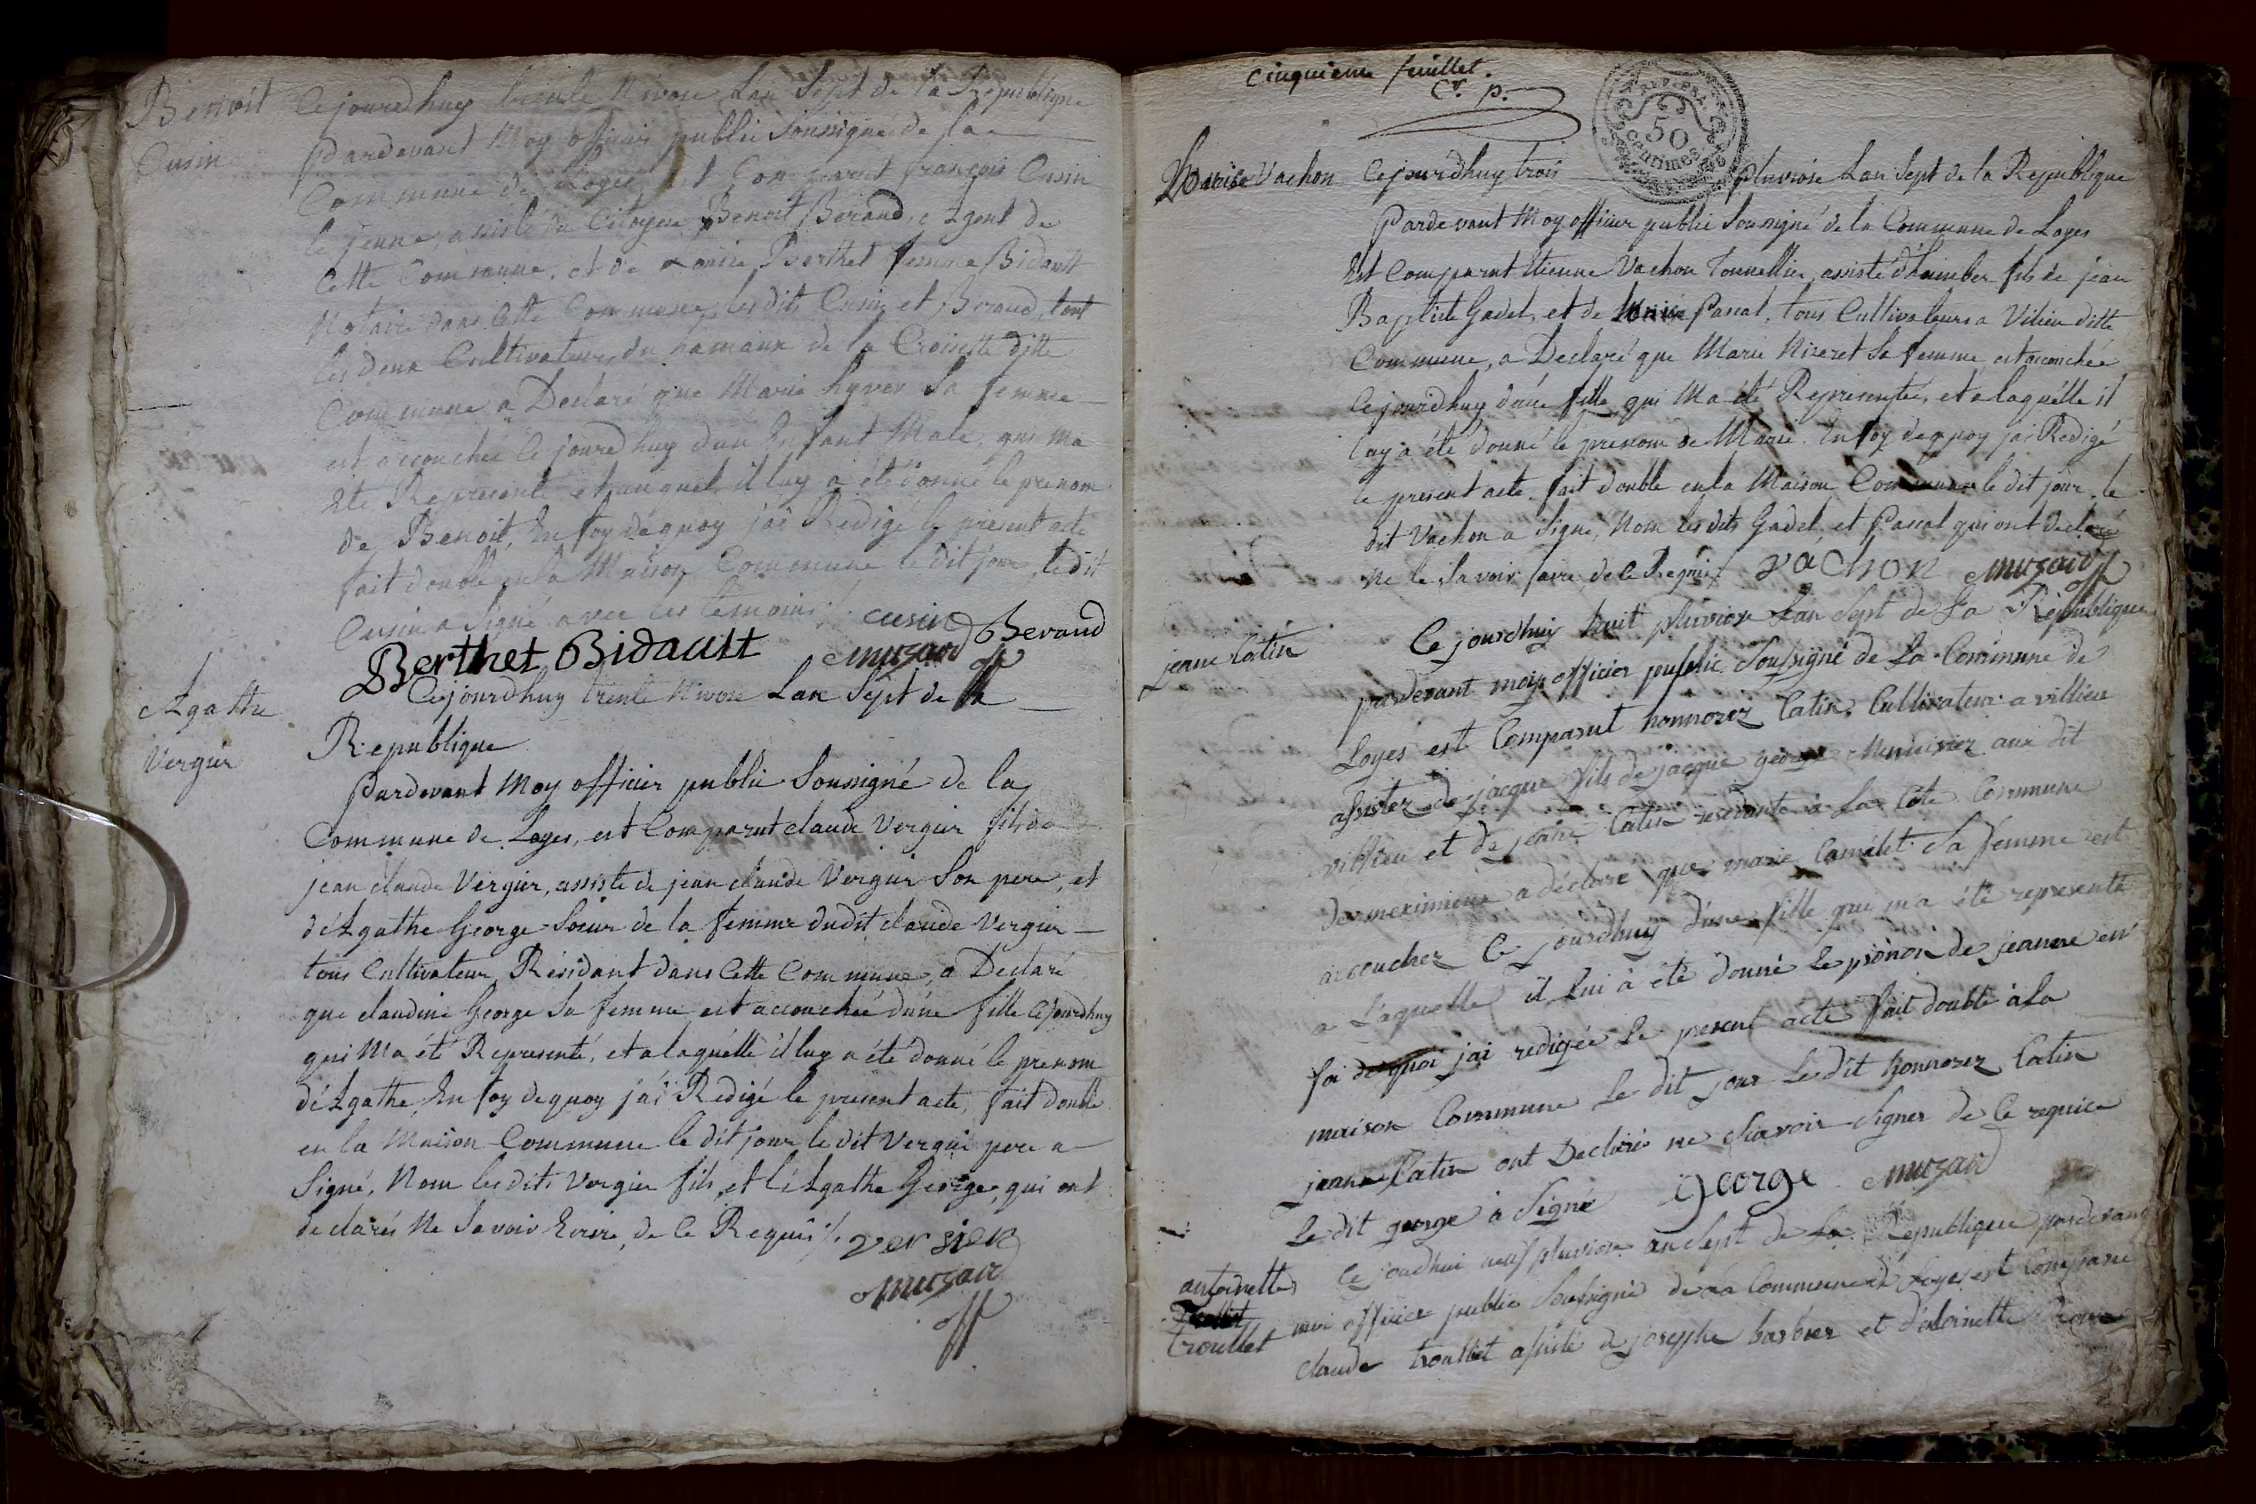 Benoit
Cusin
Cejourdhuy trente Nivose Lan Sept de la Republique
Pardevant Moy officier public Soussigné de la
Commune de Loyes, est Comparut françois Cusin
le jeune, assisté du Citoyen Benoit Beraud, Agent de
Cette Commune, et de Louise Berthet femme Bidault
Notaire dans Cette Commune, lesdits Cusin et Beraud, tout
les deux Cultivateurs du hamaux de la Croisette ditte
Commune a Declaré que Marie hyver Sa femme
est accouchée Ce jourdhuy dun Enfant Male, qui ma
été Representé et auquel il luy a été donné le prenom
de Benoit, En foy dequoy jai Redigé le present acte
fait double en la Maison Commune le dit jour, le dit
Cusin a Signé avec les temoins
cusin Beraud
Berthet Bidault Muzard off
Agathe
Vergier
Cejourdhuy trente Nivose Lan Sept de la
Republique
Pardevant Moy officier public Soussigné de la
Commune de Loyes, est Comparut claude Vergier fils de
jean claude Vergier, assisté de jean claude Vergier Son pere, et
d'Agathe George Soeur de la femme dudit claude Vergier
tous Cultivateur, Residant dans Cette Commune, a Declaré
que claudine George Sa femme est accouchée d'une fille Cejourdhuy
qui Ma été Representé, et a laquélle il luy a été donné le prenom
d'Agathe, En foy dequoy j'ai Redigé le present acte, fait double
en la Maison Commune le dit jour le dit Vergier pere a
Signé, Nom lesdits Vergier fils et l'Agathe George, qui ont
declarés Ne Savoir Ecrire, de Ce Requis
Versier
Muzard
off
cinquieme feuillet.
C. P.
REP. FRA.
50
centimes
Marie Vachon
Cejourdhuy trois pluviose Lan Sept de la Republique
Pardevant Moy officier public Soussigné de la Commune de Loyes
Est Comparut Etienne Vachon Tonnellier, assisté d'humber fils de jean
Baptiste Gadel, et de Marie Pascal, tous Cultivateurs a Vilieu ditte
Commune, a Declaré que Marie Nizeret Sa femme est accouchée
Cejourdhuy d'une fille qui Ma été Representée, et a laquélle il
luy a été donné le prenom de Marie. En foy dequoy jai Redigé
le present acte, fait double en la Maison Commune le dit jour, le
dit Vachon a Signé, Nom les dits Gadel, et Pascal qui ont declaré
Ne le Savoir faire de Ce Requis
vachon Muzard off
jeane Catin
Ce jourdhuy huit pluviose Lan Sept de La Republique
pardevant moy officier public Soussigné de La Commune de
Loyes est Comparut honnorez Catin Cultivateur a villieu
assistez de jacque fils de jacque george Menuisier aux dit
villieu et de jeane Catin residante à La Côte Commune
de meximieux a déclaré que marie Camélet Sa femme est
accouchez Ce jourdhuy d'une fille qui m'a été representé
a Laquelle il Lui à été donné Le prénon de jeanne en
foi de quoi jai redigée Le present acte fait double à La
maison Commune Le dit jour Le dit honnorez Catin
jeanne Catin ont Declaré ne Scavoir Signer de Ce requice
Le dit george a Signé
George Muzard
antoinette
troullet
Ce jourdhui neuf pluviose an Sept de La Republique pardevant
moi officier public Soussigné de La Commune de Loyes est Comparu
claude troullet assisté de josephe barbier et d'antoinette